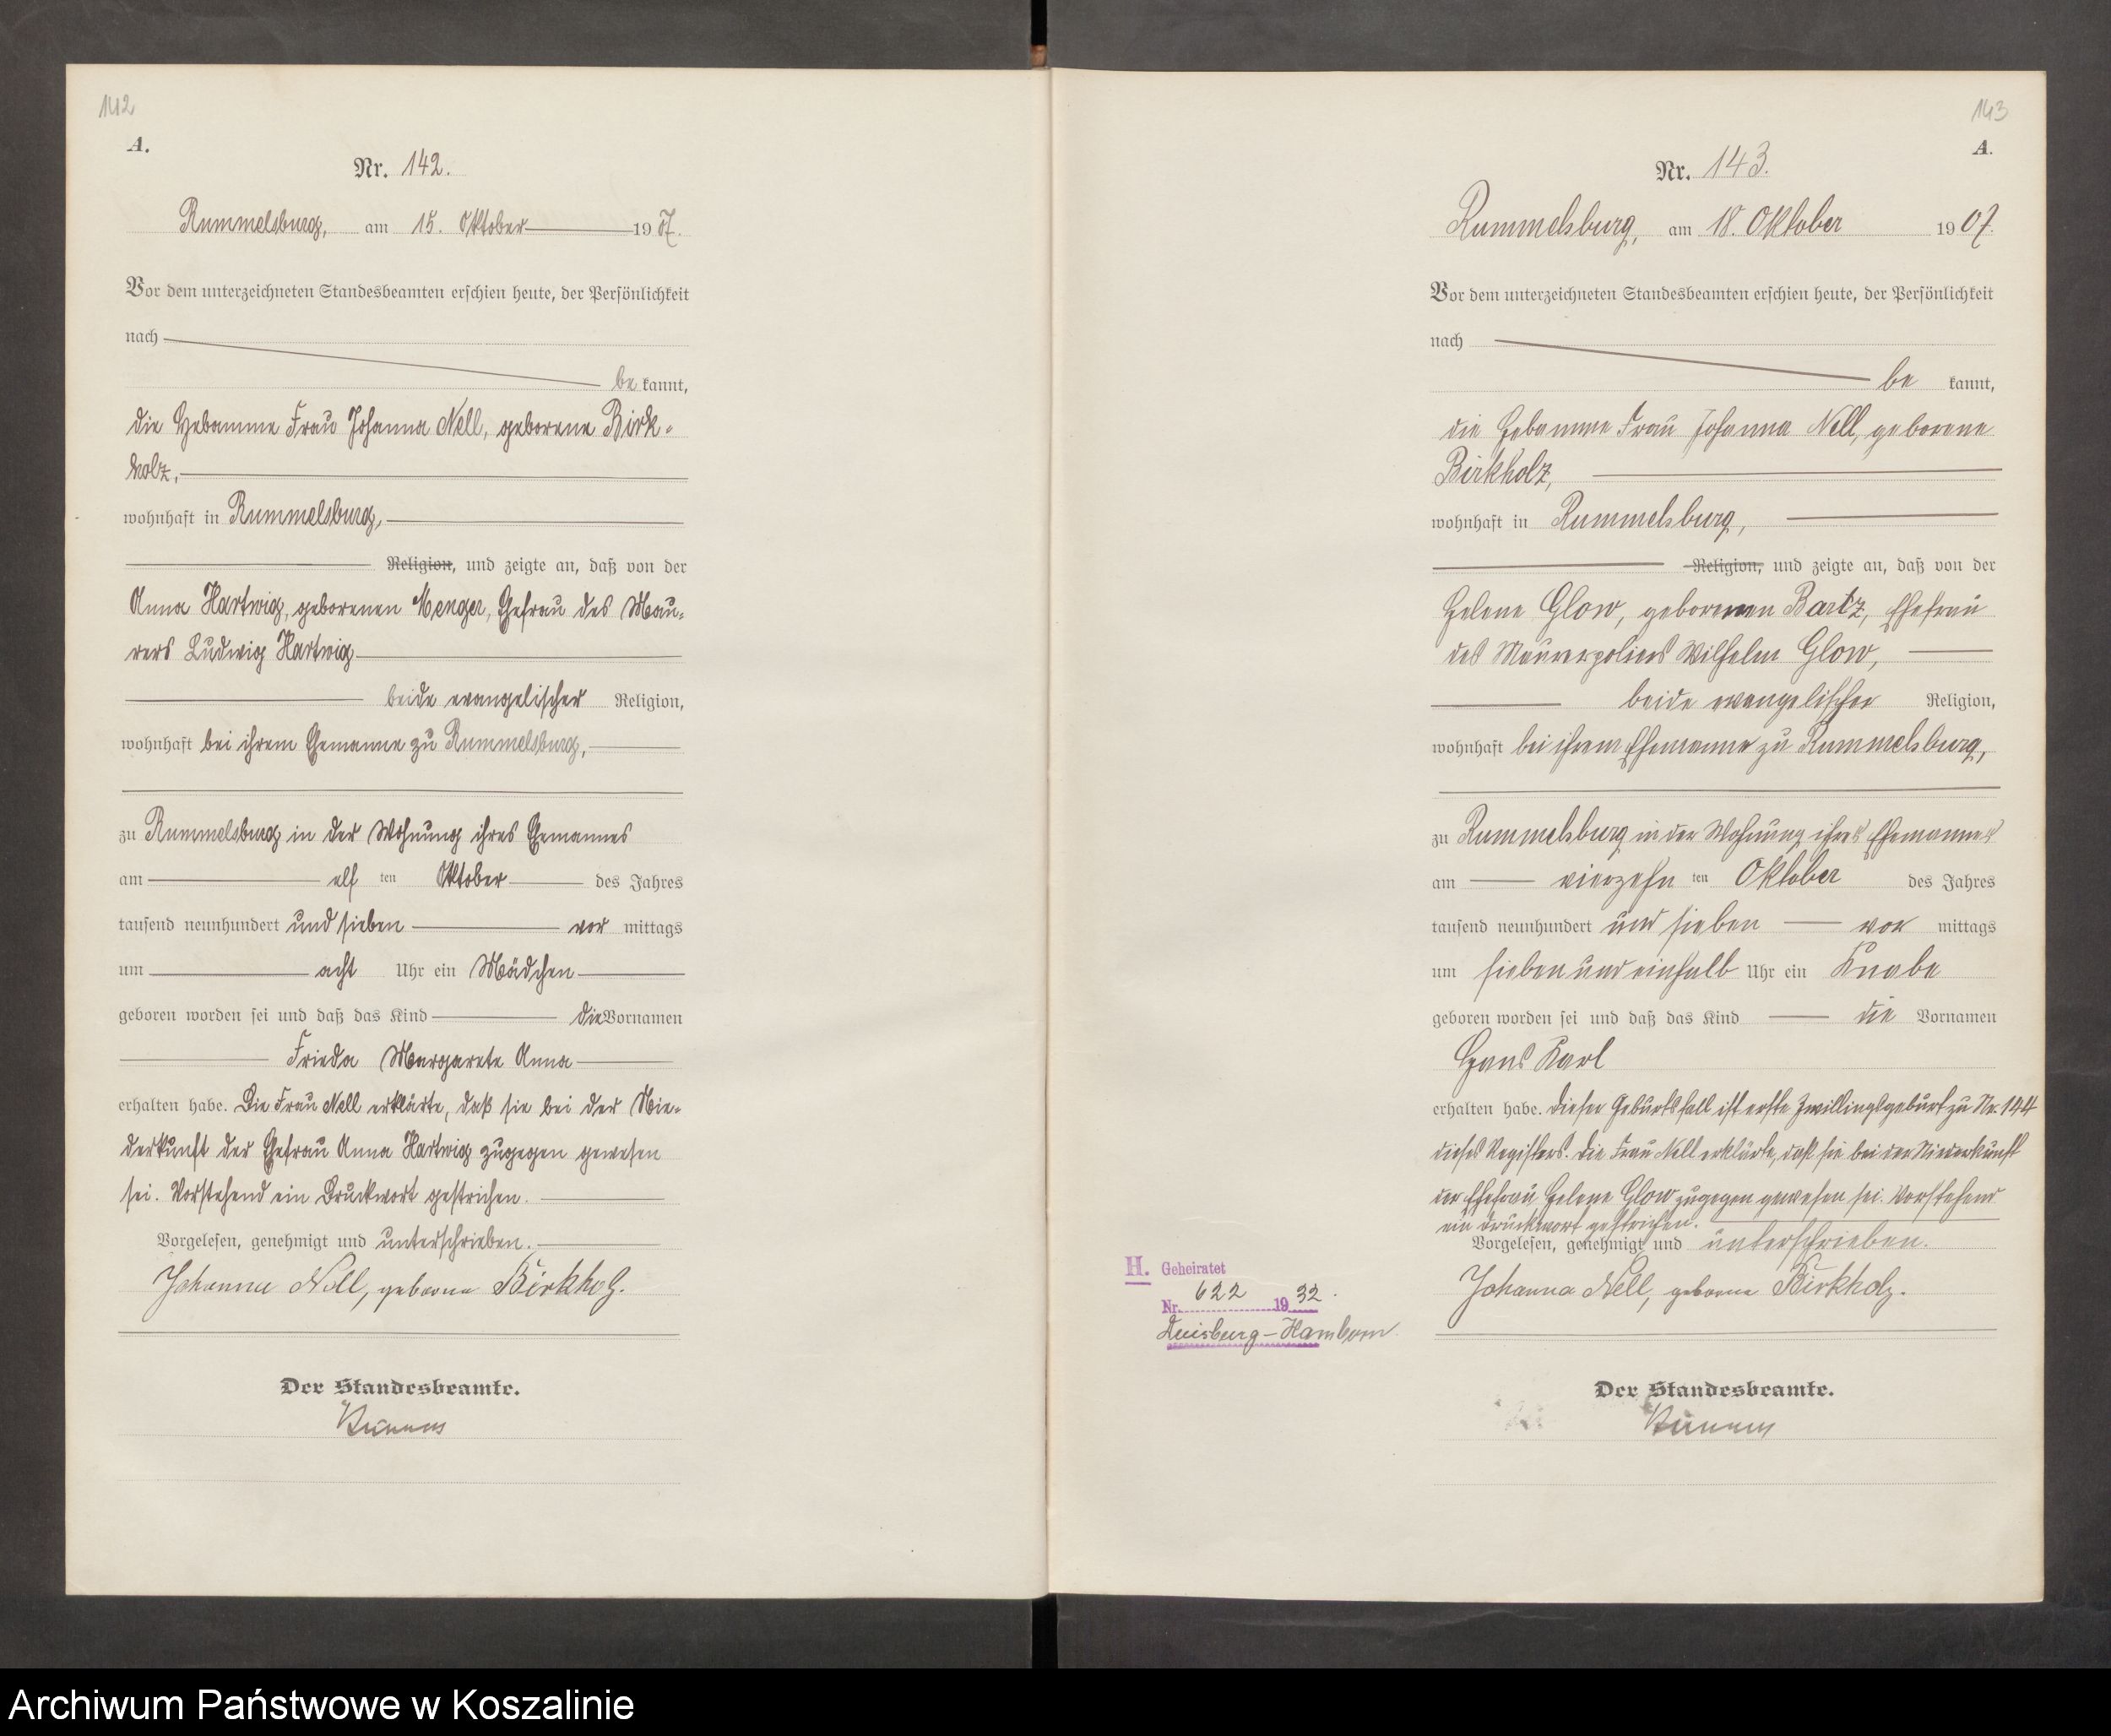 142
A.
Nr. 142.
Rummelsburg, am 15. Oktober 1907.
Vor dem unterzeichneten Standesbeamten erschien heute, der Persönlichkeit
nach
be kannt,
die Hebamme Frau Johanna Nell, geborene Birk-
holz,
wohnhaft in Rummelsburg,
Religion, und zeigte an, daß von der
Anna Hartwig, geborenen Menger, Ehefrau des Mau-
rers Ludwig Hartwig
beide evangelischer Religion,
wohnhaft bei ihrem Ehemanne zu Rummelsburg,
zu Rummelsburg in der Wohnung ihres Ehemannes
am elf ten Oktober des Jahres
tausend neunhundert und sieben vor mittags
um acht Uhr ein Mädchen
geboren worden sei und daß das Kind die Vornamen
Frieda Margarete Anna
erhalten habe. Die Frau Nell erklärte, daß sie bei der Nie-
derkunft der Ehefrau Anna Hartwig zugegen gewesen
sei. Vorstehend ein Druckwort gestrichen.
Vorgelesen, genehmigt und unterschrieben.
Johanna Nell, geborne Birkholz.
Der Standesbeamte.
143
A.
Nr. 143.
Rummelsburg, am 18. Oktober 1907.
Vor dem unterzeichneten Standesbeamten erschien heute, der Persönlichkeit
nach
be kannt,
die Hebamme Frau Johanna Nell, geborene
Birkholz,
wohnhaft in Rummelsburg,
Religion, und zeigte an, daß von der
Helene Glow, geborenen Bartz, Ehefrau
des Maurerpoliers Wilhelm Glow,
beide evangelischer Religion,
wohnhaft bei ihrem Ehemanne zu Rummelsburg,
zu Rummelsburg in der Wohnung ihres Ehemannes
am vierzehn ten Oktober des Jahres
tausend neunhundert und sieben vor mittags
um sieben und einhalb Uhr ein Knabe
geboren worden sei und daß das Kind die Vornamen
Hans Karl
erhalten habe. Dieser Geburtsfall ist erste Zwillingsgeburt zu Nr. 144
dieses Registers. Die Frau Nell erklärte, daß sie bei der Niederkunft
der Ehefrau Helene Glow zugegen gewesen sei. Vorstehend
ein Druckwort gestrichen.
Vorgelesen, genehmigt und unterschrieben.
Johanna Nell, geborne Birkholz.
Der Standesbeamte.
H. Geheiratet
Nr. 622 1932.
Duisburg-Hamborn
Archiwum Państwowe w Koszalinie